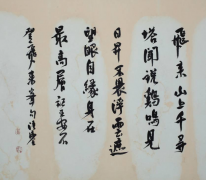 飛來山上千尋
塔聞說鷄鳴見
日昇不畏浮雲遮
望眼自緣身在
最高層王安石
登飛來峯